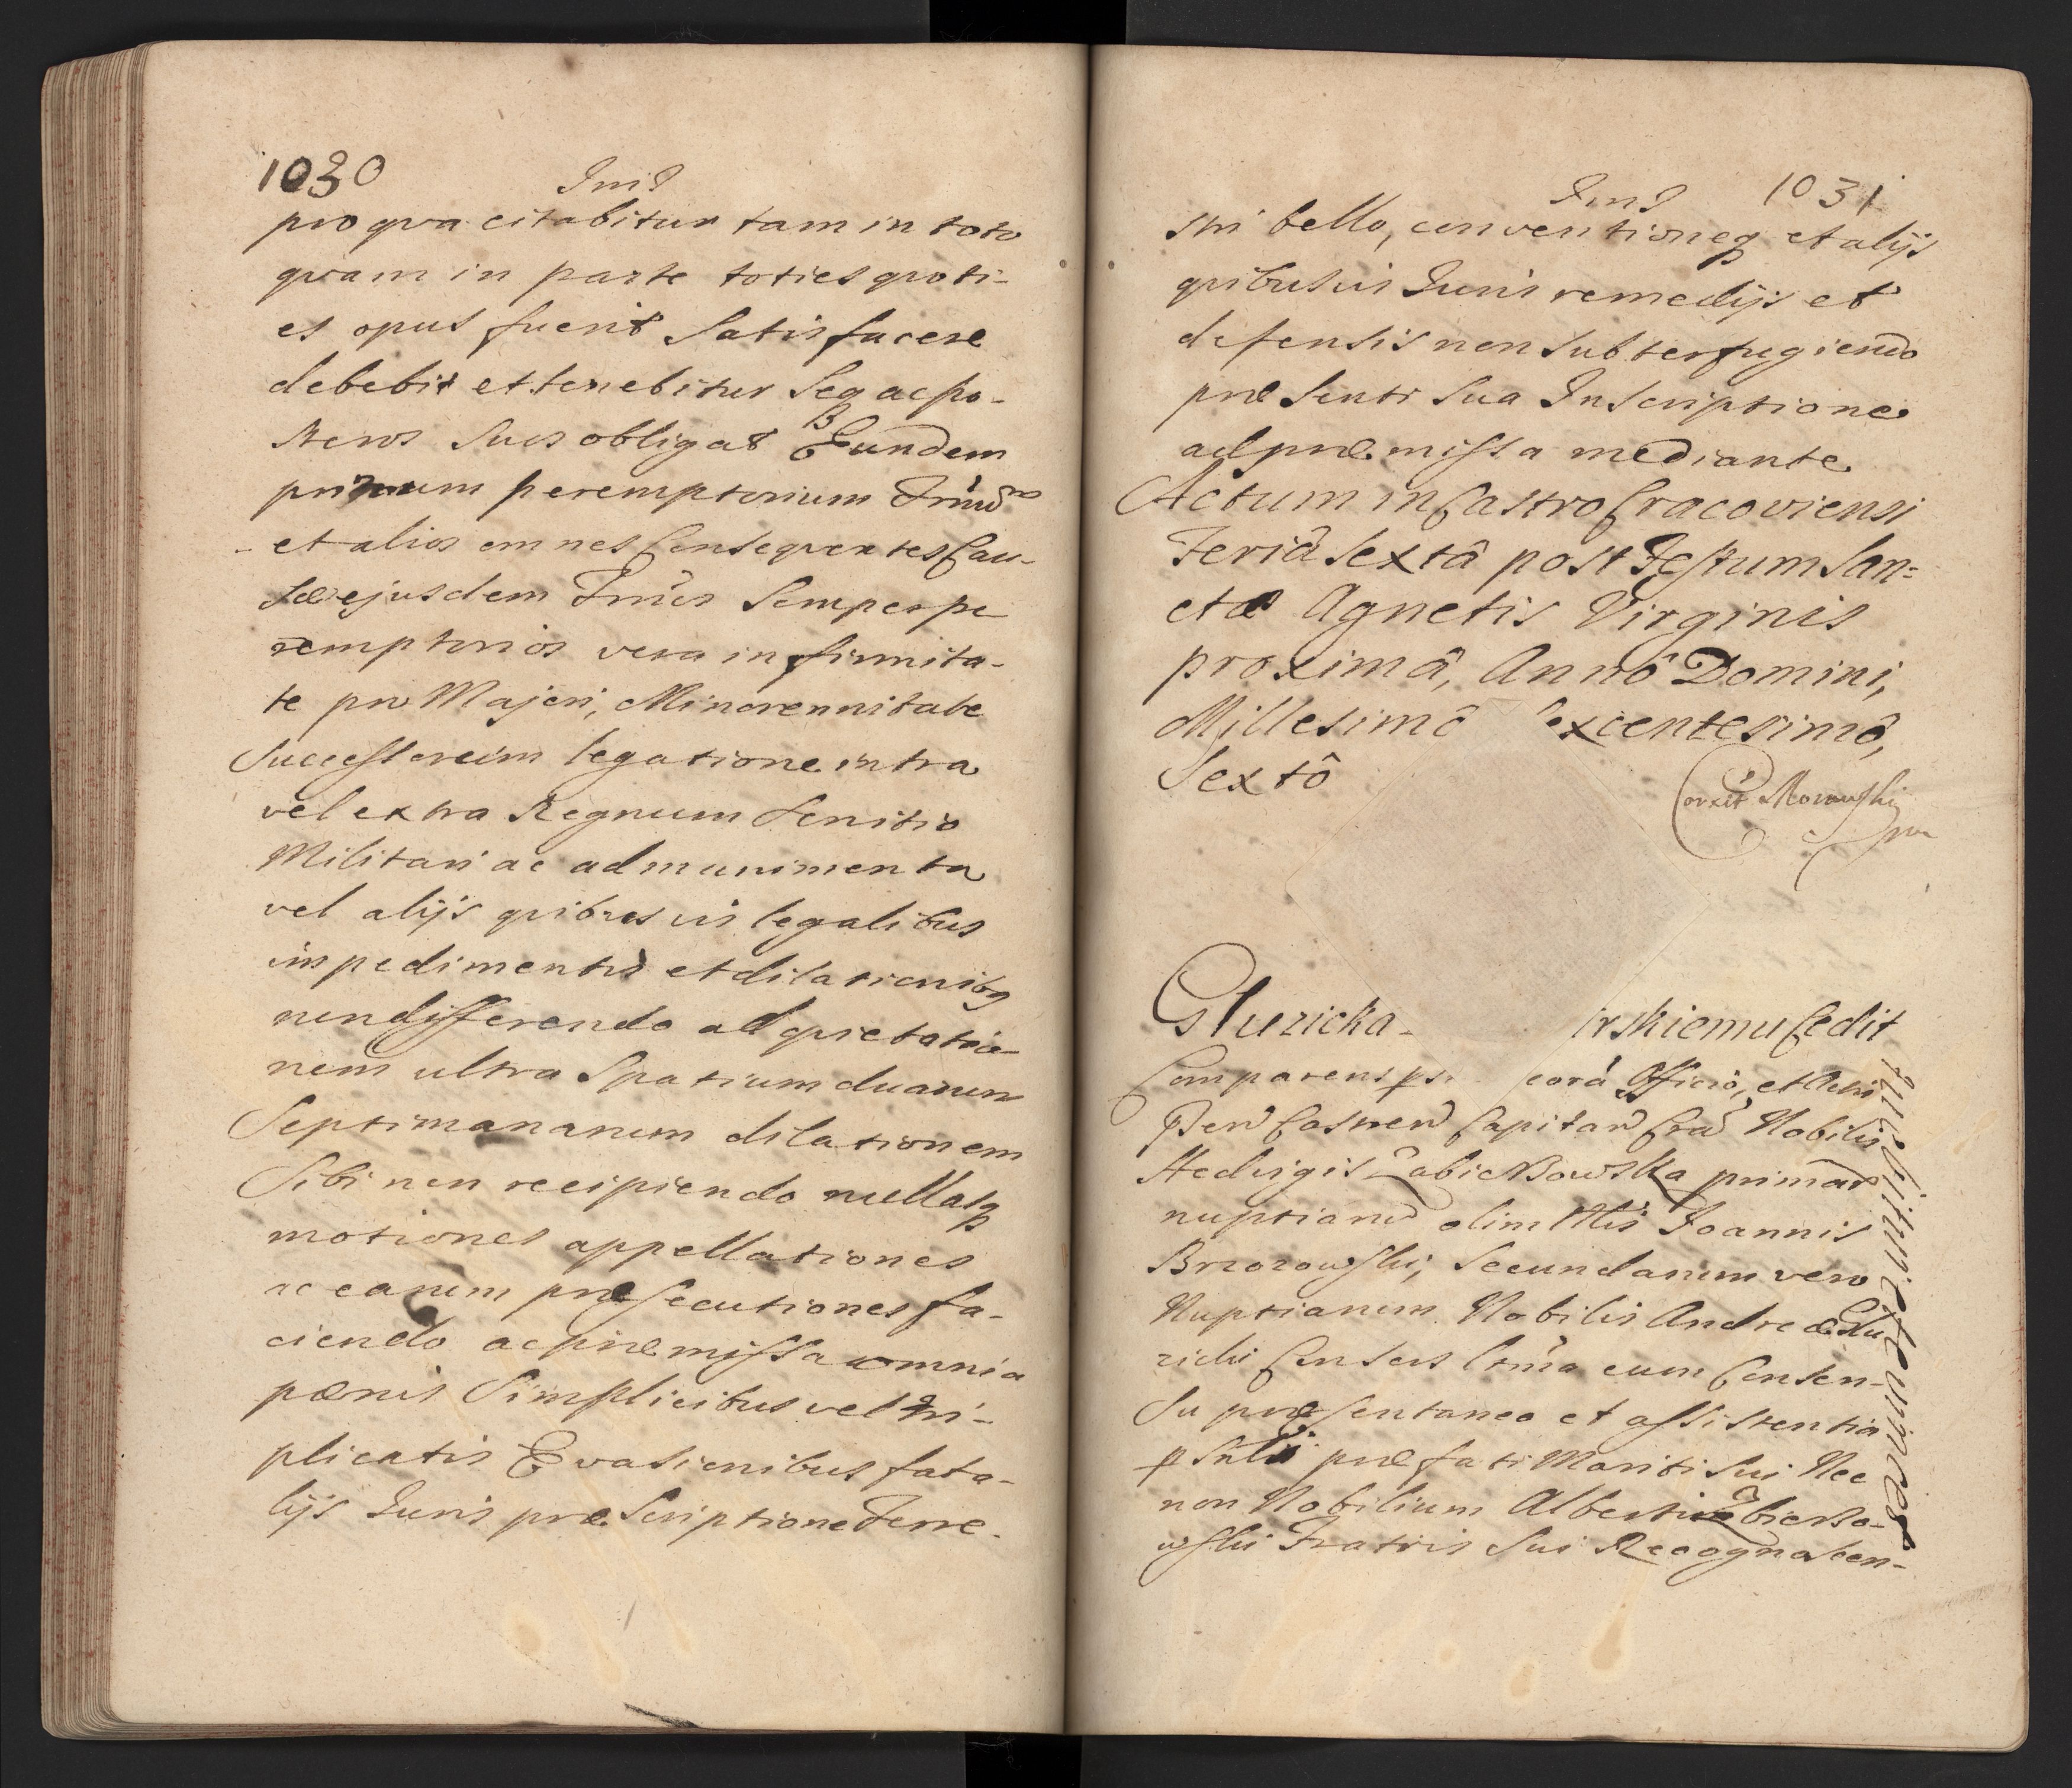 1030
pro qva citabitur tam in toto
qvam in parte toties qvoti-
es opus fuerit Satisfacere
debebit et tenebitur Seq ac po-
steros suos obligat Eundem
primum peremptorium
et alios omnes Consequentes Cau-
sæ ejusdem Semper pe
remptorios vera infirmita-
te pro Majori, Minorennitate
Successorum legatione intra
vel extra Regnum Servitio
Militari ac ad munimenta
vel alijs qvibus vis legalibus
impedimentis et dilationibq
non differendo ad qvietatio-
nem ultra Spatium duarum
Septimanarum dilationem
Sibi non recipiendo nullasq
motiones appellationes
ac earum prosecutiones fa-
ciendo ac præmissa omnia
pœnis Simplicibus vel tri-
plicatis Evasionibus fata-
lijs Juris præscriptione Terre-
1031
stri bello, conventioneq et alijs
qvibusvis Juris remedijs et
defensis non subterfugiendo
præsenti sua Inscriptione
ad præmissa mediante
Actum in Castro Cracoviensi
Feriâ Sextâ post Festum San-
ctæ Agnetis Virginis
proximâ, Annô Domini,
Millesimô excentesimô,
Sextô
Gluzicka- rskiemu Cedit
Comparens corá Officiô, et Actis
Nobilis
Hedvigis primar
nuptiaru olim Joannis
Brzozowski, Secundarum vero
Nuptiarum Nobilis Andreæ Glu
zicki Consors cum Consen-
su præsentaneo et assistentia
præfati Mariti sui Nec
non Nobilium Alberti
wski Fratris sui Recognoscen-